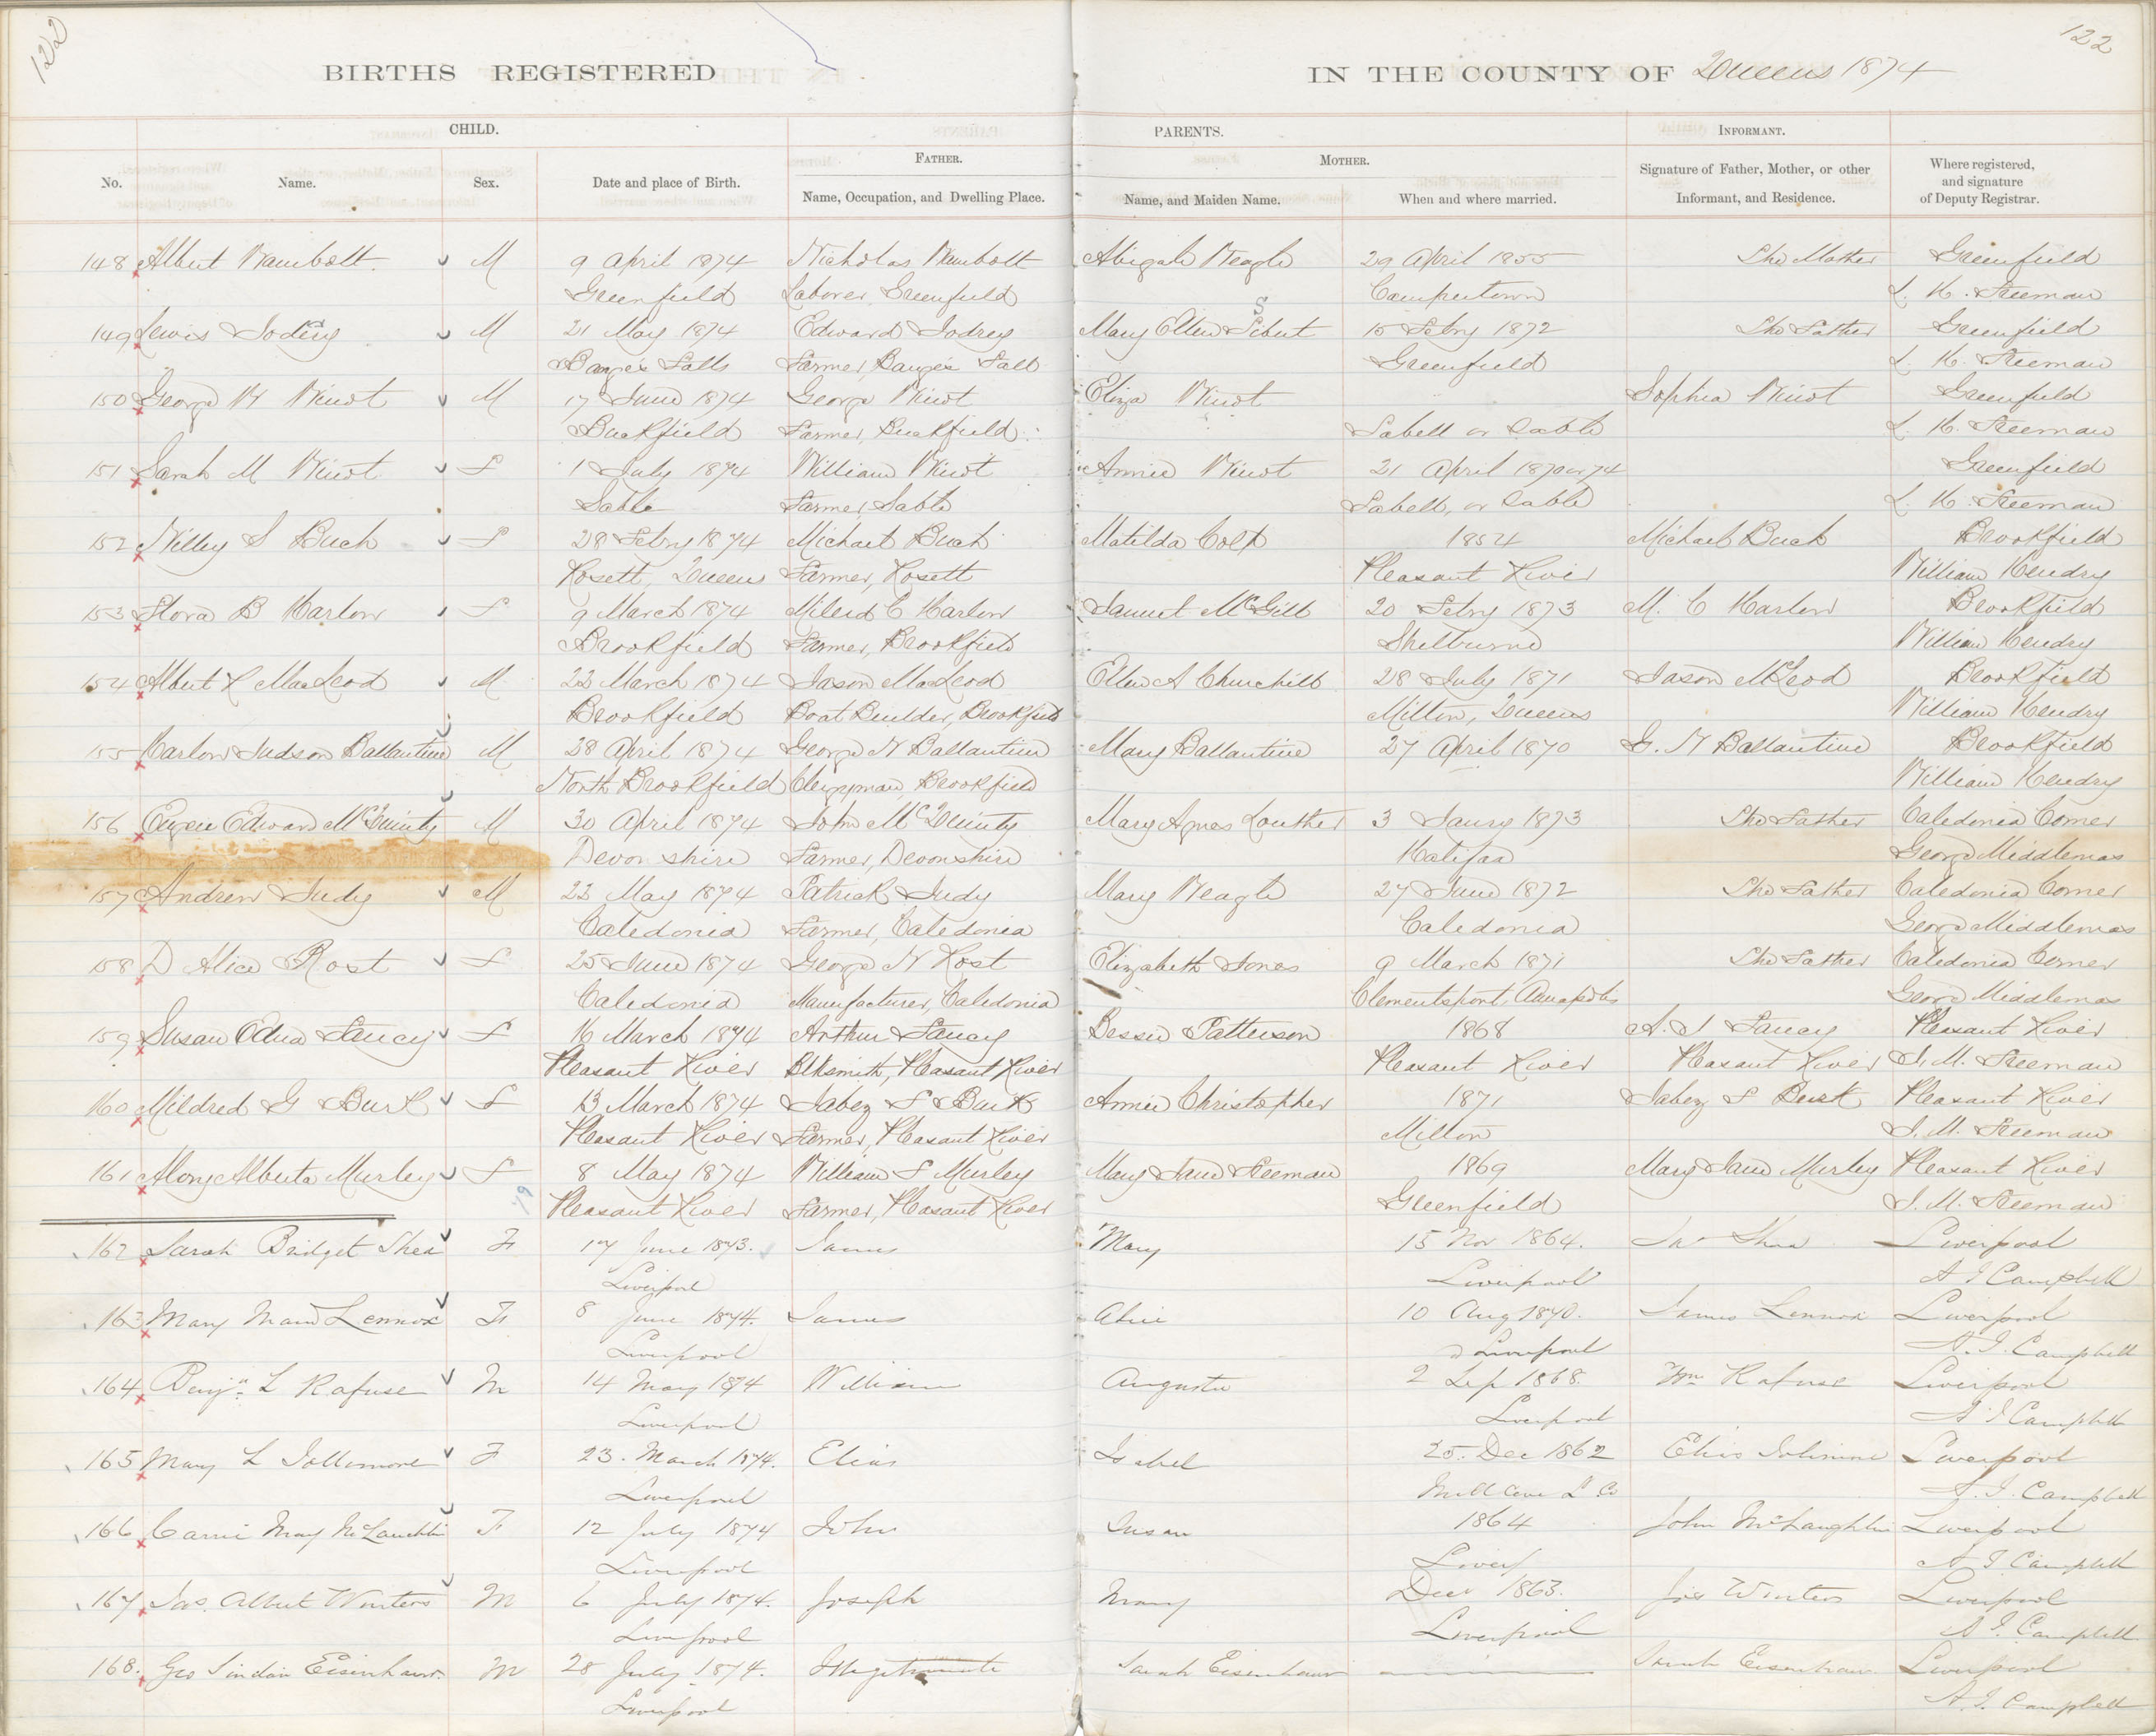 122
122
BIRTHS REGISTERED IN THE COUNTY OF Queens 1874
CHILD. PARENTS. INFORMANT.
FATHER. MOTHER.
No. Name. Sex. Date and place of Birth. Name, Occupation, and Dwelling Place. Name, and Maiden Name. When and where married. Signature of Father, Mother, or other Informant, and Residence. Where registered, and signature of Deputy Registrar.
148 Albert Wambolt M 9 April 1874 Nicholas Wambolt Abigale Neagle 29 April 1855 The Mother Greenfield
Greenfield Laborer, Greenfield Campertown L. H. Freeman
149 Lewis Jodrey M 21 May 1874 Edward Jodrey Mary Ellen Sibert 15 Febry 1872 The Father Greenfield
Bangs Falls Farmer, Bangs Falls Greenfield L. H. Freeman
150 George W Winot M 17 June 1874 George Winot Eliza Winot Sophia Winot Greenfield
Buckfield Farmer, Buckfield Labell or Sable L. H. Freeman
151 Sarah M Winot F 1 July 1874 William Winot Annie Winot 21 April 1870 or 74 Greenfield
Sable Farmer, Sable Labell, or Sable L. H. Freeman
152 Willey S Buch F 28 Febry 1874 Michael Buch Matilda Colp 1854 Michael Buch Brookfield
Rosett, Queens Farmer, Rosett Pleasant River William Hendry
153 Flora B Harlow F 9 March 1874 Miled C Harlow Samuel McGill 20 Febry 1873 M. C Harlow Brookfield
Brookfield Farmer, Brookfield Shelburne William Hendry
154 Albert R MacLeod M 22 March 1874 Jason MacLeod Ellen A Churchill 28 July 1871 Jason McLeod Brookfield
Brookfield Boat Builder, Brookfield Milton, Queens William Hendry
155 Harlow Judson Ballantine M 28 April 1874 George N Ballantine Mary Ballantine 27 April 1870 G. N Ballantine Brookfield
North Brookfield Clergyman, Brookfield William Hendry
156 Eugene Edward McGuinty M 30 April 1874 John McGuinty Mary Agnes Louther 3 Janry 1873 The Father Caledonia Corner
Devonshire Farmer, Devonshire Halifax George Middlemas
157 Andrew Judy M 22 May 1874 Patrick Judy Mary Neagle 27 June 1872 The Father Caledonia Corner
Caledonia Farmer, Caledonia Caledonia George Middlemas
158 D Alice Rost F 25 June 1874 George N Rost Elizabeth Jones 9 March 1871 The Father Caledonia Corner
Caledonia Manufacturer, Caledonia Clementsport, Annapolis George Middlemas
159 Susan Edna Fancy F 16 March 1874 Arthur Fancy Bessie Patterson 1868 A. J Fancy Pleasant River
Pleasant River Blksmith, Pleasant River Pleasant River Pleasant River J. M. Freeman
160 Mildred G Burk F 13 March 1874 Jabez F Burk Annie Christopher 1871 Jabez F Burk Pleasant River
Pleasant River Farmer, Pleasant River Milton J. M. Freeman
161 Alberta Murley F 8 May 1874 William F Murley Mary Jane Freeman 1869 Mary Jane Murley Pleasant River
Pleasant River Farmer, Pleasant River Greenfield J. M. Freeman
162 Sarah Bridget Shea F 17 June 1873. James Mary 15 Nov 1864. Jas Shea Liverpool
Liverpool Liverpool A J Campbell
163 Mary Maud Lennox F 8 June 1874. James Alice 10 Aug 1870. James Lennox Liverpool
Liverpool Liverpool A. J. Campbell
164 Benjn L Rafuse M 14 May 1874 William Augusta 2 Sep 1868. Wm Rafuse Liverpool
Liverpool Liverpool A J Campbell
165 Mary L Jollimore F 23. March 1874. Elias Isabel 25. Dec 1862 Elias Liverpool
Liverpool Mill Cove L Co A. J. Campbell
166 Carrie May McLauchlin F 12 July 1874 John Susan 1864 John McLaughlin Liverpool
Liverpool Liverp A J Campbell
167 Jas. Albert Winters M 6 July 1874. Joseph Mary Decr 1863. Jos Winters Liverpool
Liverpool Liverpool A J. Campbell
168. Geo Eisenhaur. M 28 July 1874. Illegitimate Sarah Eisenhaur Sarah Eisenhaur Liverpool
Liverpool A. J. Campbell